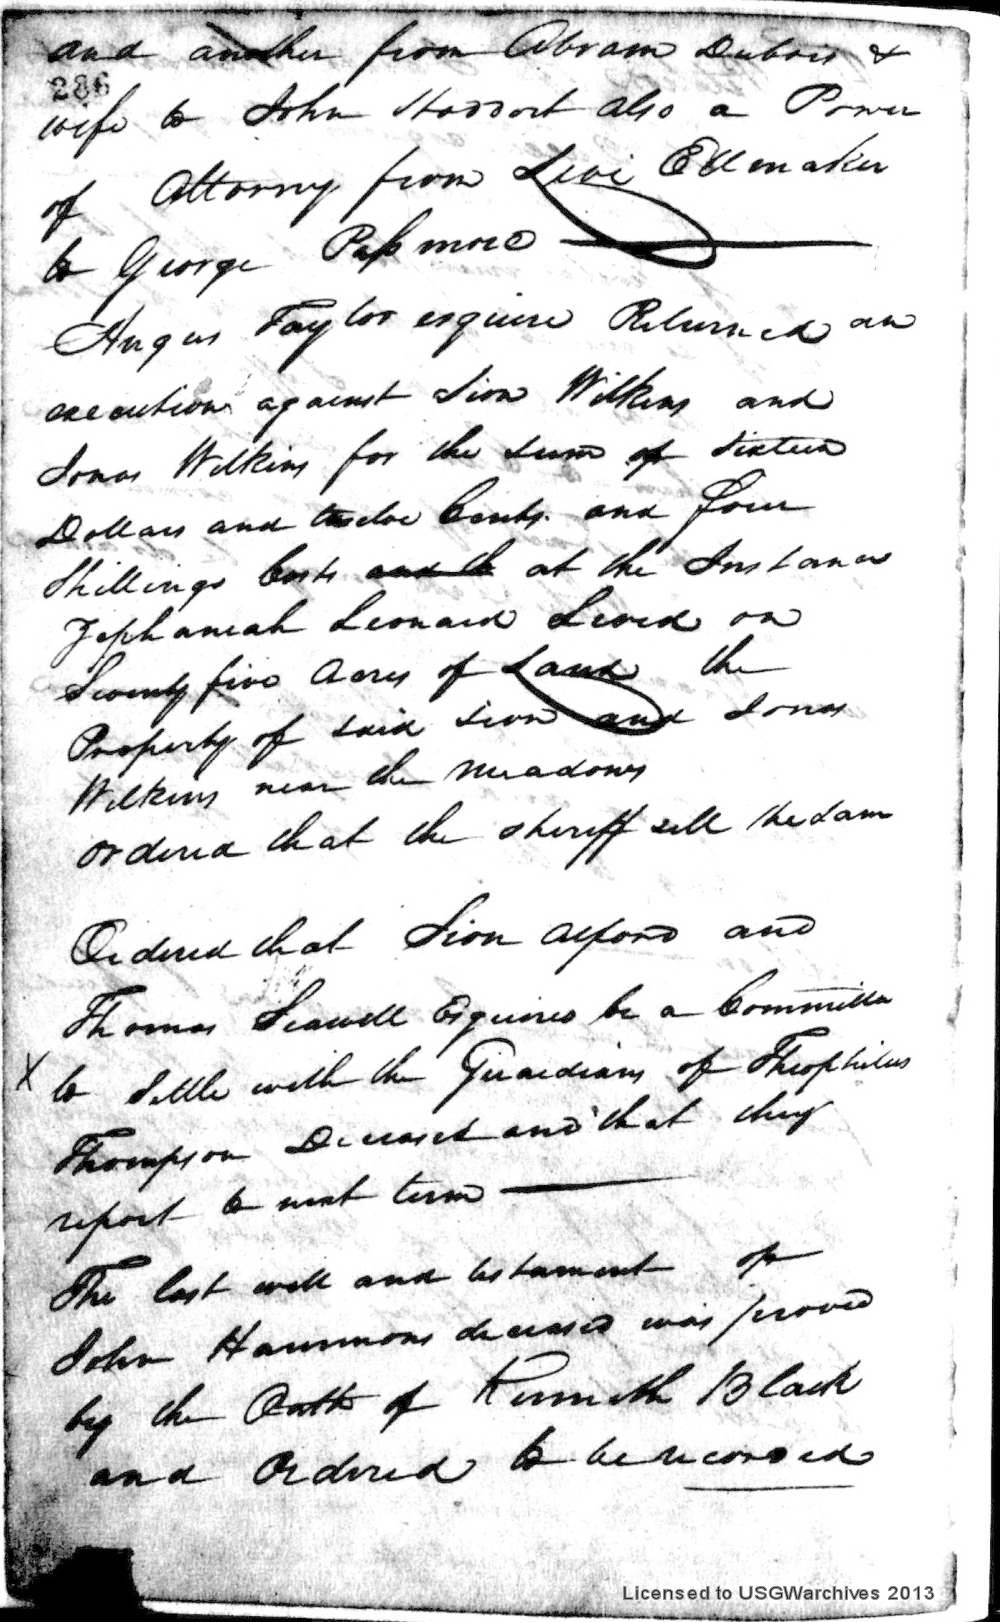 and another from Abram Dubois &
286
wife to John Stoddort also a Power
of Attorney from Levi Ellmaker
to George Passmore
Angus Taylor esquire Returned an
execution against Sion Wilkins and
Jonas Wilkins for the sum of sixteen
Dollars and twelve Cents. and four
Shillings Costs and th at the Instance
Zephaneah Leonard Levied on
Seventy five Acres of Land the
Property of said Sion and Jonas
Wilkins near the Meadows
ordered that the sheriff sell the same
Ordered that Sion Alford and
Thomas Seawell Esquires be a Committee
X to Settle with the Guardians of Theophilus
Thompson Deceased and that they
report to next term
The last will and testament of
John Hammons deceased was proved
by the Oath of Kenneth Black
and Ordered to be recorded
Licensed to USGWarchives 2013